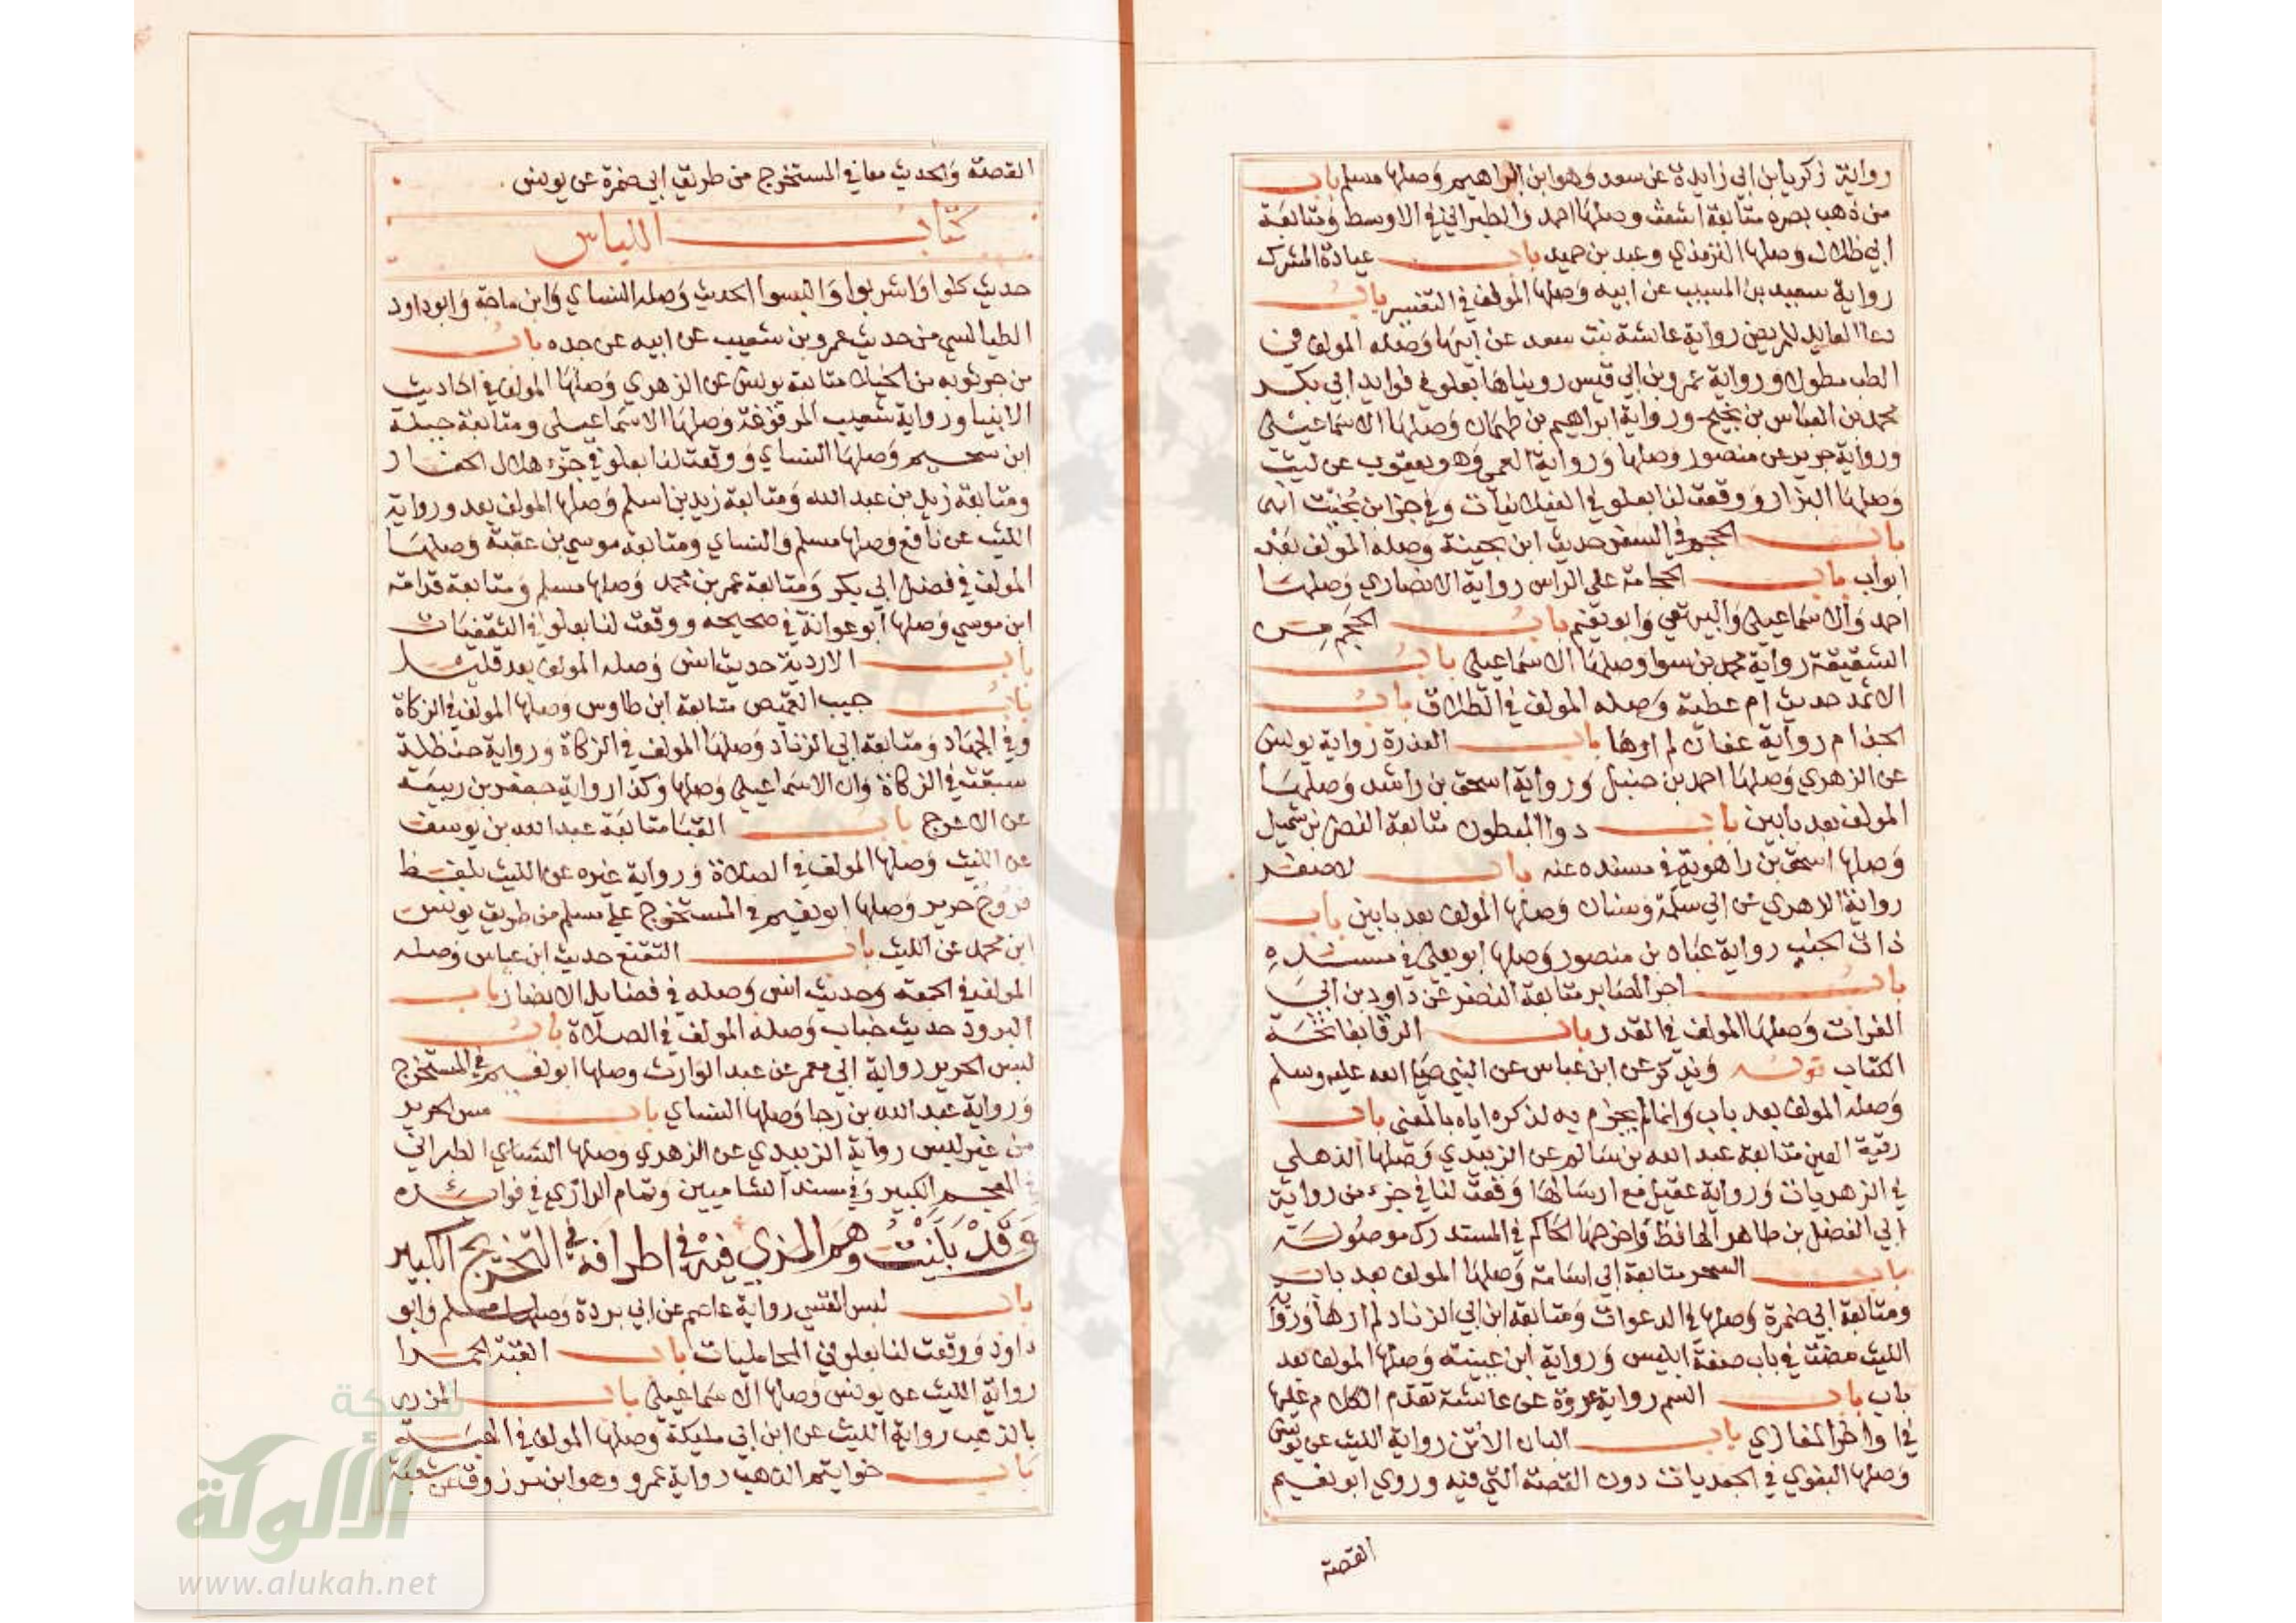 رواية زكريا بن ابي زايدة عن سعد وهو ابن ابراهيم وصلها مسلم باب
من ذهب بصره متابعة اشعث وصلها احمد والطبراني في الاوسط ومتابعة
ابي ظلال وصلها الترمذي وعبد بن حميد باب عيادة المشرك
رواية سعيد بن المسيب عن ابيه وصلها المولف في التفسير باب
دعا العايد للمريض رواية عائشة بنت سعد عن ابيها وصله المولف في
الطب مطولا ورواية عمرو بن ابي قيس رويناها بعلو في فوايد ابي بكر
محمد بن العباس بن نجيح ورواية ابراهيم بن طهمان وصلها الاسماعيلي
ورواية جرير عن منصور وصلها ورواية العمي وهو يعقوب عن ليث
وصلها البزار ووقعت لنا بعلو في الغيلانيات وفي جزء ابن بخيت انها
باب الحجم في السفر حديث ابن بحينة وصله المولف بعد
ابواب باب الحجامة على الراس رواية الانصاري وصلها
احمد والاسماعيلي والبيهقي وابو نعيم باب الحجم من
الشقيقة رواية محمد بن سوا وصلها الاسماعيلي باب
الاثمد حديث ام عطية وصله المولف في الطلاق باب
الجذام رواية عفان لم ارها باب العذرة رواية يونس
عن الزهري وصلها احمد بن حنبل ورواية اسحق بن راشد وصلها
المولف بعد بابين باب دوا المبطون متابعة النضر بن شميل
وصلها اسحق بن راهوية في مسنده عنه باب لا صفر
رواية الزهري عن ابي سلمة وسنان وصلها المولف بعد بابين باب
ذات الجنب رواية عباد بن منصور وصلها ابو يعلى في مسنده
باب اجر الصابر متابعة النضر عن داود بن ابي
الفرات وصلها المولف في القدر باب الرقا بفاتحة
الكتاب قوله ويذكر عن ابن عباس عن النبي صلى الله عليه وسلم
وصله المولف بعد باب وانما لم يجزم به لذكره اياه بالمعنى باب
رقية العين متابعة عبد الله بن سالم عن الزبيدي وصلها الذهلي
في الزهريات ورواية عقيل مع ارسالها وقعت لنا في جزء من رواية
ابي الفضل بن طاهر الحافظ واخرجها الحاكم في المستدرك موصولة
باب السحر متابعة ابي اسامة وصلها المولف بعد باب
ومتابعة ابي ضمرة وصلها في الدعوات ومتابعة ابن ابي الزناد لم ارها ورواية
الليث مضت في باب صفة ابليس ورواية ابن عيينة وصلها المولف بعد
باب باب السم رواية عروة عن عائشة تقدم الكلام عليها
في اواخر المغازي باب البان الاتن رواية الليث عن يونس
وصلها البغوي في الجعديات دون القصة التي فيه وروي ابو نعيم
القصة
القصة والحديث معا في المستخرج من طريق ابي ضمرة عن يونس
كتاب اللباس
حديث كلوا واشربوا والبسوا الحديث وصله النساي وابن ماجة وابو داود
الطيالسي من حديث عمرو بن شعيب عن ابيه عن جده باب
من جر ثوبه من الخيلاء متابعة يونس عن الزهري وصلها المولف في احاديث
الانبيا ورواية شعيب المرفوعة وصلها الاسماعيلي ومتابعة جبلة
ابن سحيم وصلها النساي ووقعت لنا بعلو في جزء هلال الحفار
ومتابعة زيد بن عبد الله ومتابعة زيد بن اسلم وصلها المولف بعد ورواية
الليث عن نافع وصلها مسلم والنساي ومتابعة موسى بن عقبة وصلها
المولف في فضل ابي بكر ومتابعة عمر بن محمد وصلها مسلم ومتابعة قدامة
ابن موسي وصلها ابو عوانة في صحيحه ووقعت لنا بعلو في الثقفيات
باب الاردية حديث انس وصله المولف بعد قليل
باب جيب القميص متابعة ابن طاوس وصلها المولف في الزكاة
وفي الجهاد ومتابعة ابي الزناد وصلها المولف في الزكاة ورواية حنظلة
سبقت في الزكاة وان الاسماعيلي وصلها وكذا رواية جعفر بن ربيعة
عن الاعرج باب القبا متابعة عبد الله بن يوسف
عن الليث وصلها المولف في الصلاة ورواية غيره عن الليث بلفظ
فروج حرير وصلها ابو نعيم في المستخرج على مسلم من طريق يونس
ابن محمد عن الليث باب التقنع حديث ابن عباس وصله
المولف في الجمعة وحديث انس وصله في فضايل الانصار باب
البرود حديث خباب وصله المولف في الصلاة باب
لبس الحرير رواية ابي معمر عن عبد الوارث وصلها ابو نعيم في المستخرج
ورواية عبد الله بن رجا وصلها النساي باب مس الحرير
من غير لبس رواية الزبيدي عن الزهري وصلها النساي الطبراني
في المعجم الكبير وفي مسند الشاميين وتمام الرازي في فوائده
وقد بينت وهم المزي فيه في اطرافه في التخريج الكبير
باب لبس القسي رواية عاصم عن ابي بردة وصلها مسلم وابو
داود ووقعت لنا بعلو في المحامليات باب القبة الحمرا
رواية الليث عن يونس وصلها الاسماعيلي باب المزرر
بالذهب رواية الليث عن ابن ابي مليكة وصلها المولف في الهبة
باب خواتيم الذهب رواية عمرو وهو ابن مرزوق عن شعبة
شبكة
الألوكة
www.alukah.net